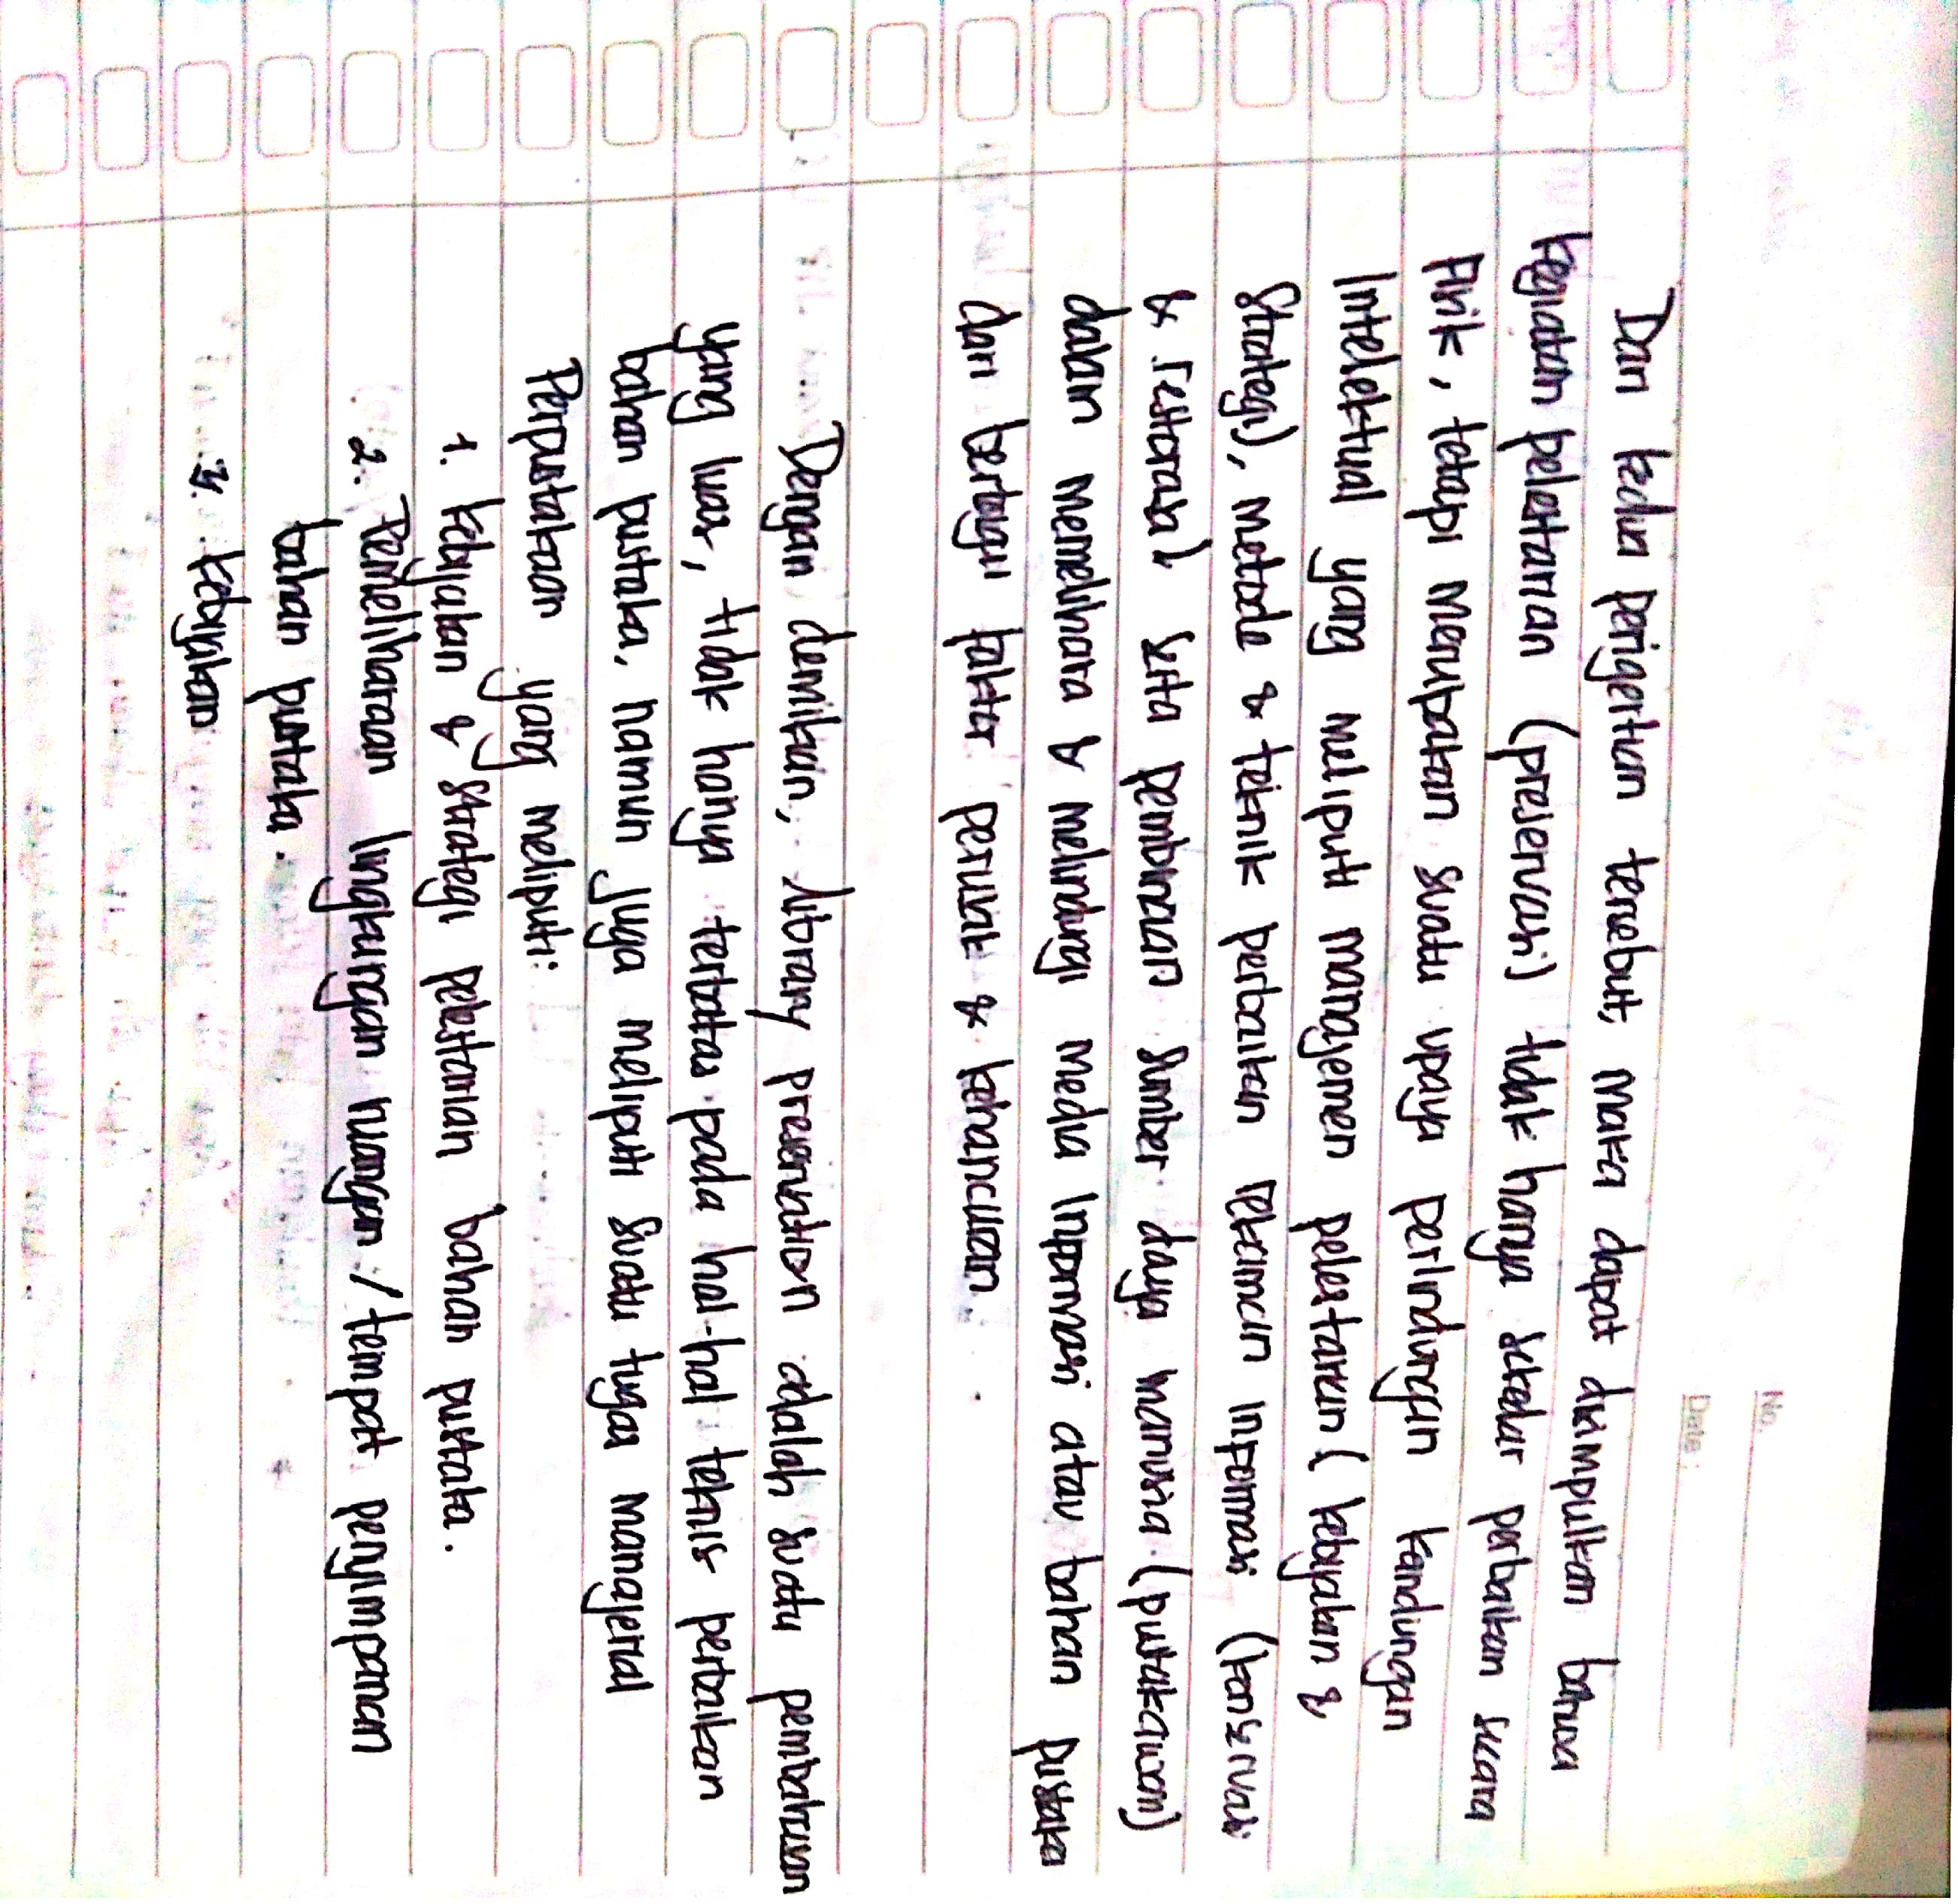 No.
Date:
Dari kedua pengertian tersebut, maka dapat disimpulkan bahwa
kegiatan pelestarian (preservasi) tidak hanya sekedar perbaikan secara
Fisik, tetapi merupakan suatu upaya perlindungan kandungan
Intelektual yang meliputi manajemen pelestarian (kebijakan &
Strategi), metode & teknik perbaikan rekaman informasi (konservasi
& restorasi) serta pembinaan sumber daya manusia (pustakawan)
dalam memelihara & melindungi media informasi atau bahan pustaka
dari berbagai faktor perusak & kehancuran.
Dengan demikian, library preservation adalah suatu pembahasan
yang luas, tidak hanya terbatas pada hal-hal teknis perbaikan
bahan pustaka, namun juga meliputi suatu tugas manajerial
Perpustakaan yang meliputi:
1. kebijakan & strategi pelestarian bahan pustaka.
2. Pemeliharaan lingkungan ruangan / tempat penyimpanan
bahan pustaka.
3. kebijakan